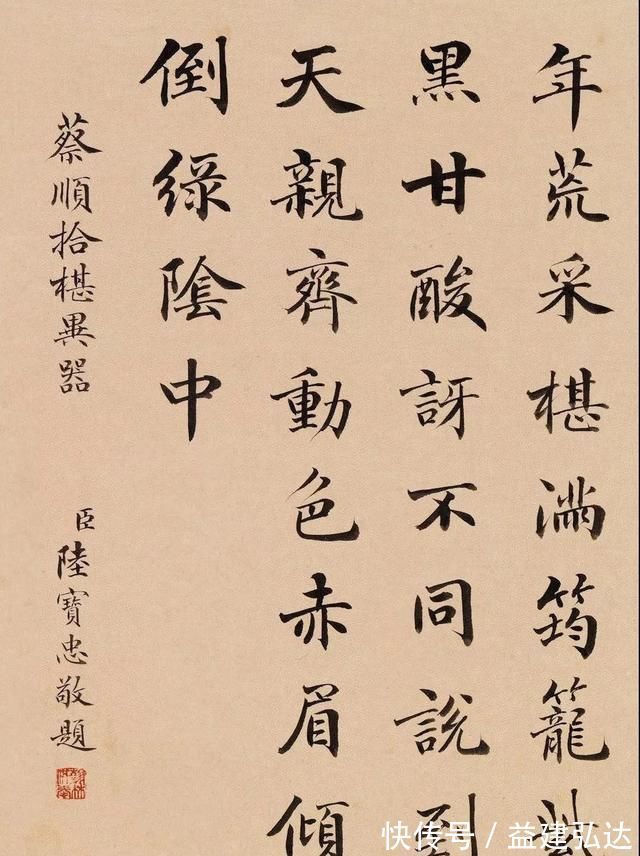 年荒采椹滿筠籠
黑甘酸訝不同說到
天親齊動色赤眉傾
倒綠陰中
蔡順拾椹異器
臣陸寶忠敬題
快传号／益建弘达